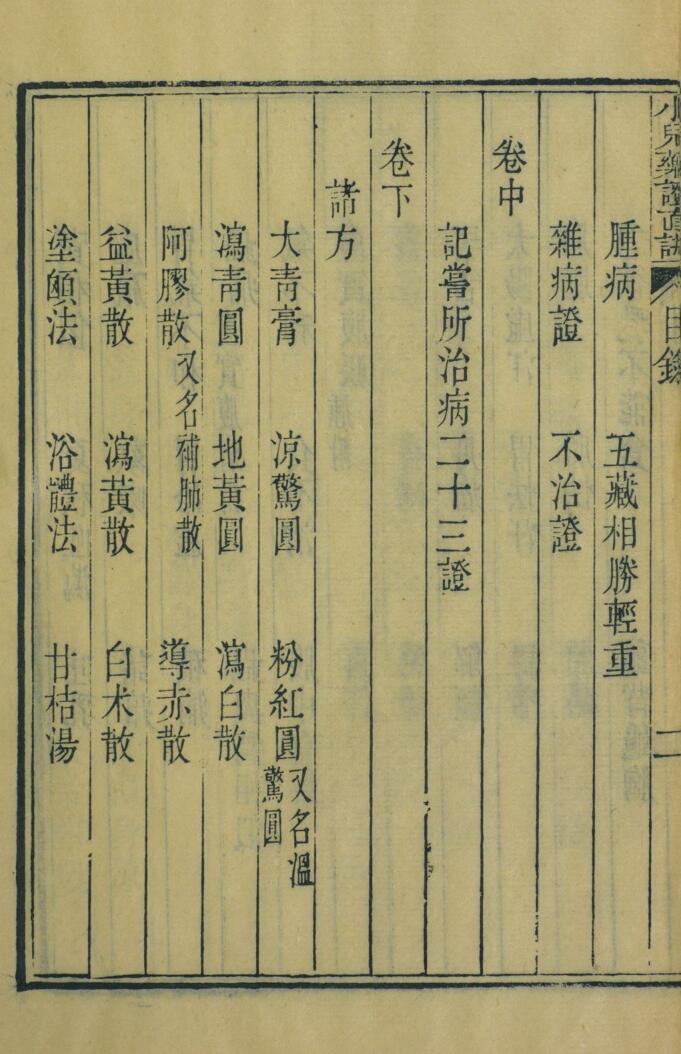 小兒藥證直訣 目錄 二
腫病 五藏相勝輕重
雜病證 不治證
卷中
記嘗所治病二十三證
卷下
諸方
大青膏 涼驚圓 粉紅圓又名溫驚圓
瀉青圓 地黃圓 瀉白散
阿膠散又名補肺散 導赤散
益黃散 瀉黃散 白术散
塗顖法 浴體法 甘桔湯